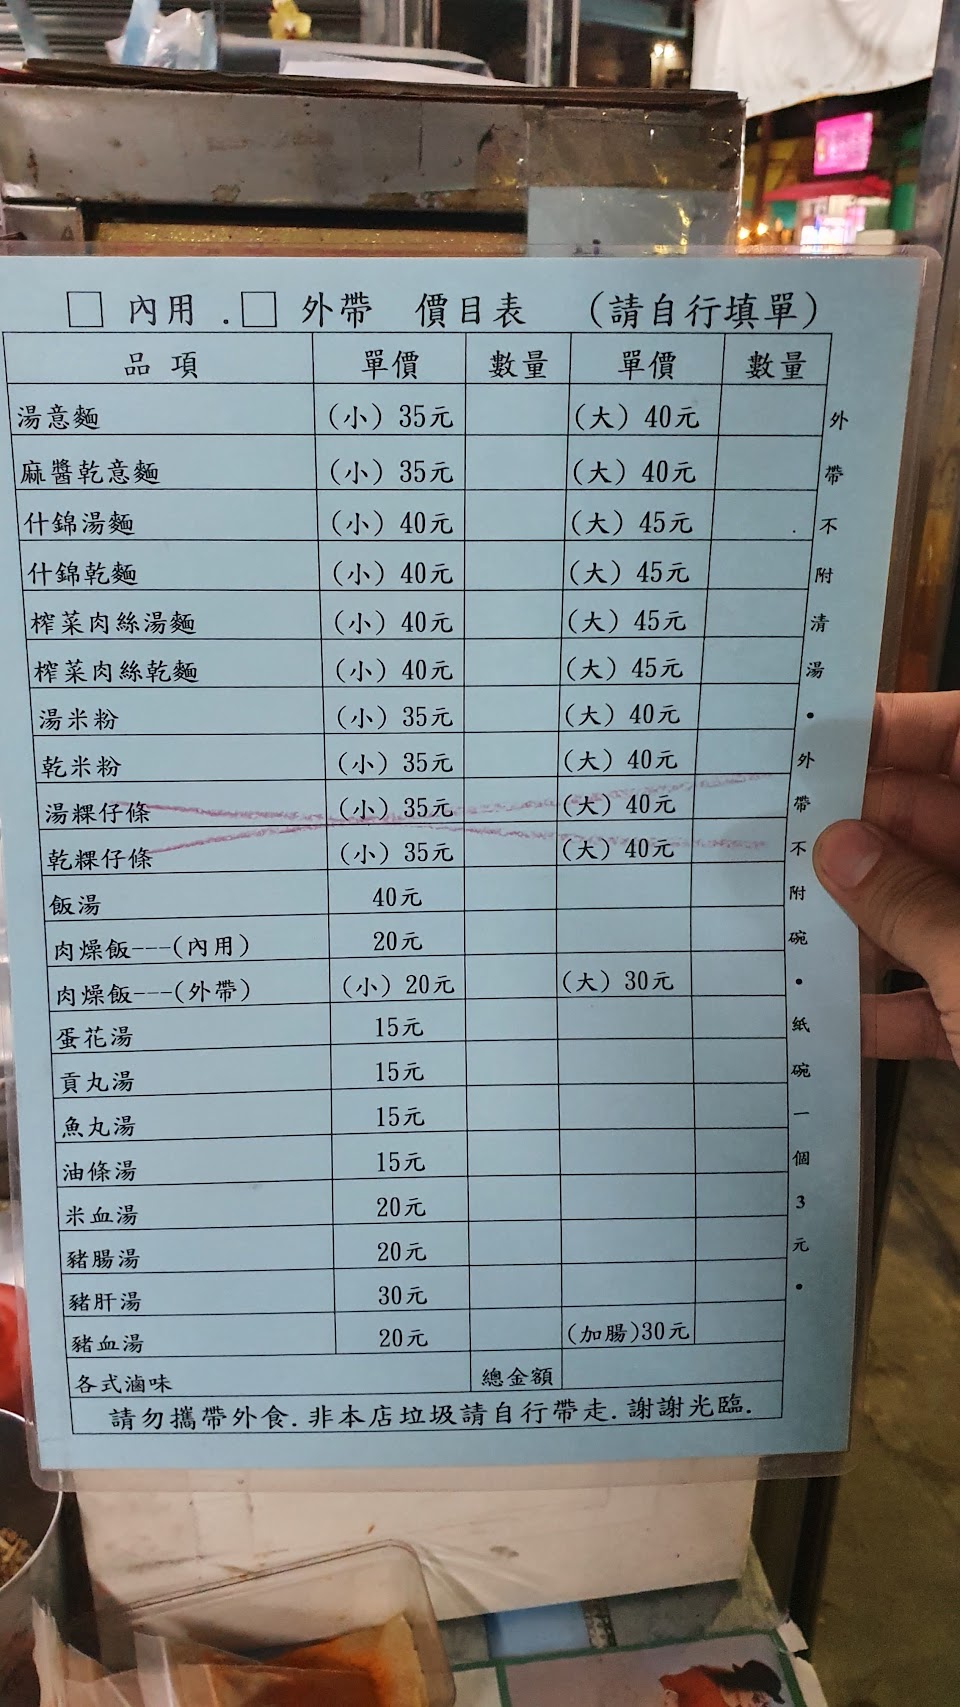 □ 內用 . □ 外帶 價目表 (請自行填單)
品項 單價 數量 單價 數量
湯意麵 (小) 35元 (大) 40元
麻醬乾意麵 (小) 35元 (大) 40元
什錦湯麵 (小) 40元 (大) 45元
什錦乾麵 (小) 40元 (大) 45元
榨菜肉絲湯麵 (小) 40元 (大) 45元
榨菜肉絲乾麵 (小) 40元 (大) 45元
湯米粉 (小) 35元 (大) 40元
乾米粉 (小) 35元 (大) 40元
湯粿仔條 (小) 35元 (大) 40元
乾粿仔條 (小) 35元 (大) 40元
飯湯 40元
肉燥飯---(內用) 20元
肉燥飯---(外帶) (小) 20元 (大) 30元
蛋花湯 15元
貢丸湯 15元
魚丸湯 15元
油條湯 15元
米血湯 20元
豬腸湯 20元
豬肝湯 30元
豬血湯 20元 (加腸)30元
各式滷味 總金額
請勿攜帶外食.非本店垃圾請自行帶走.謝謝光臨.
外帶不附清湯•外帶不附碗•紙碗一個3元•